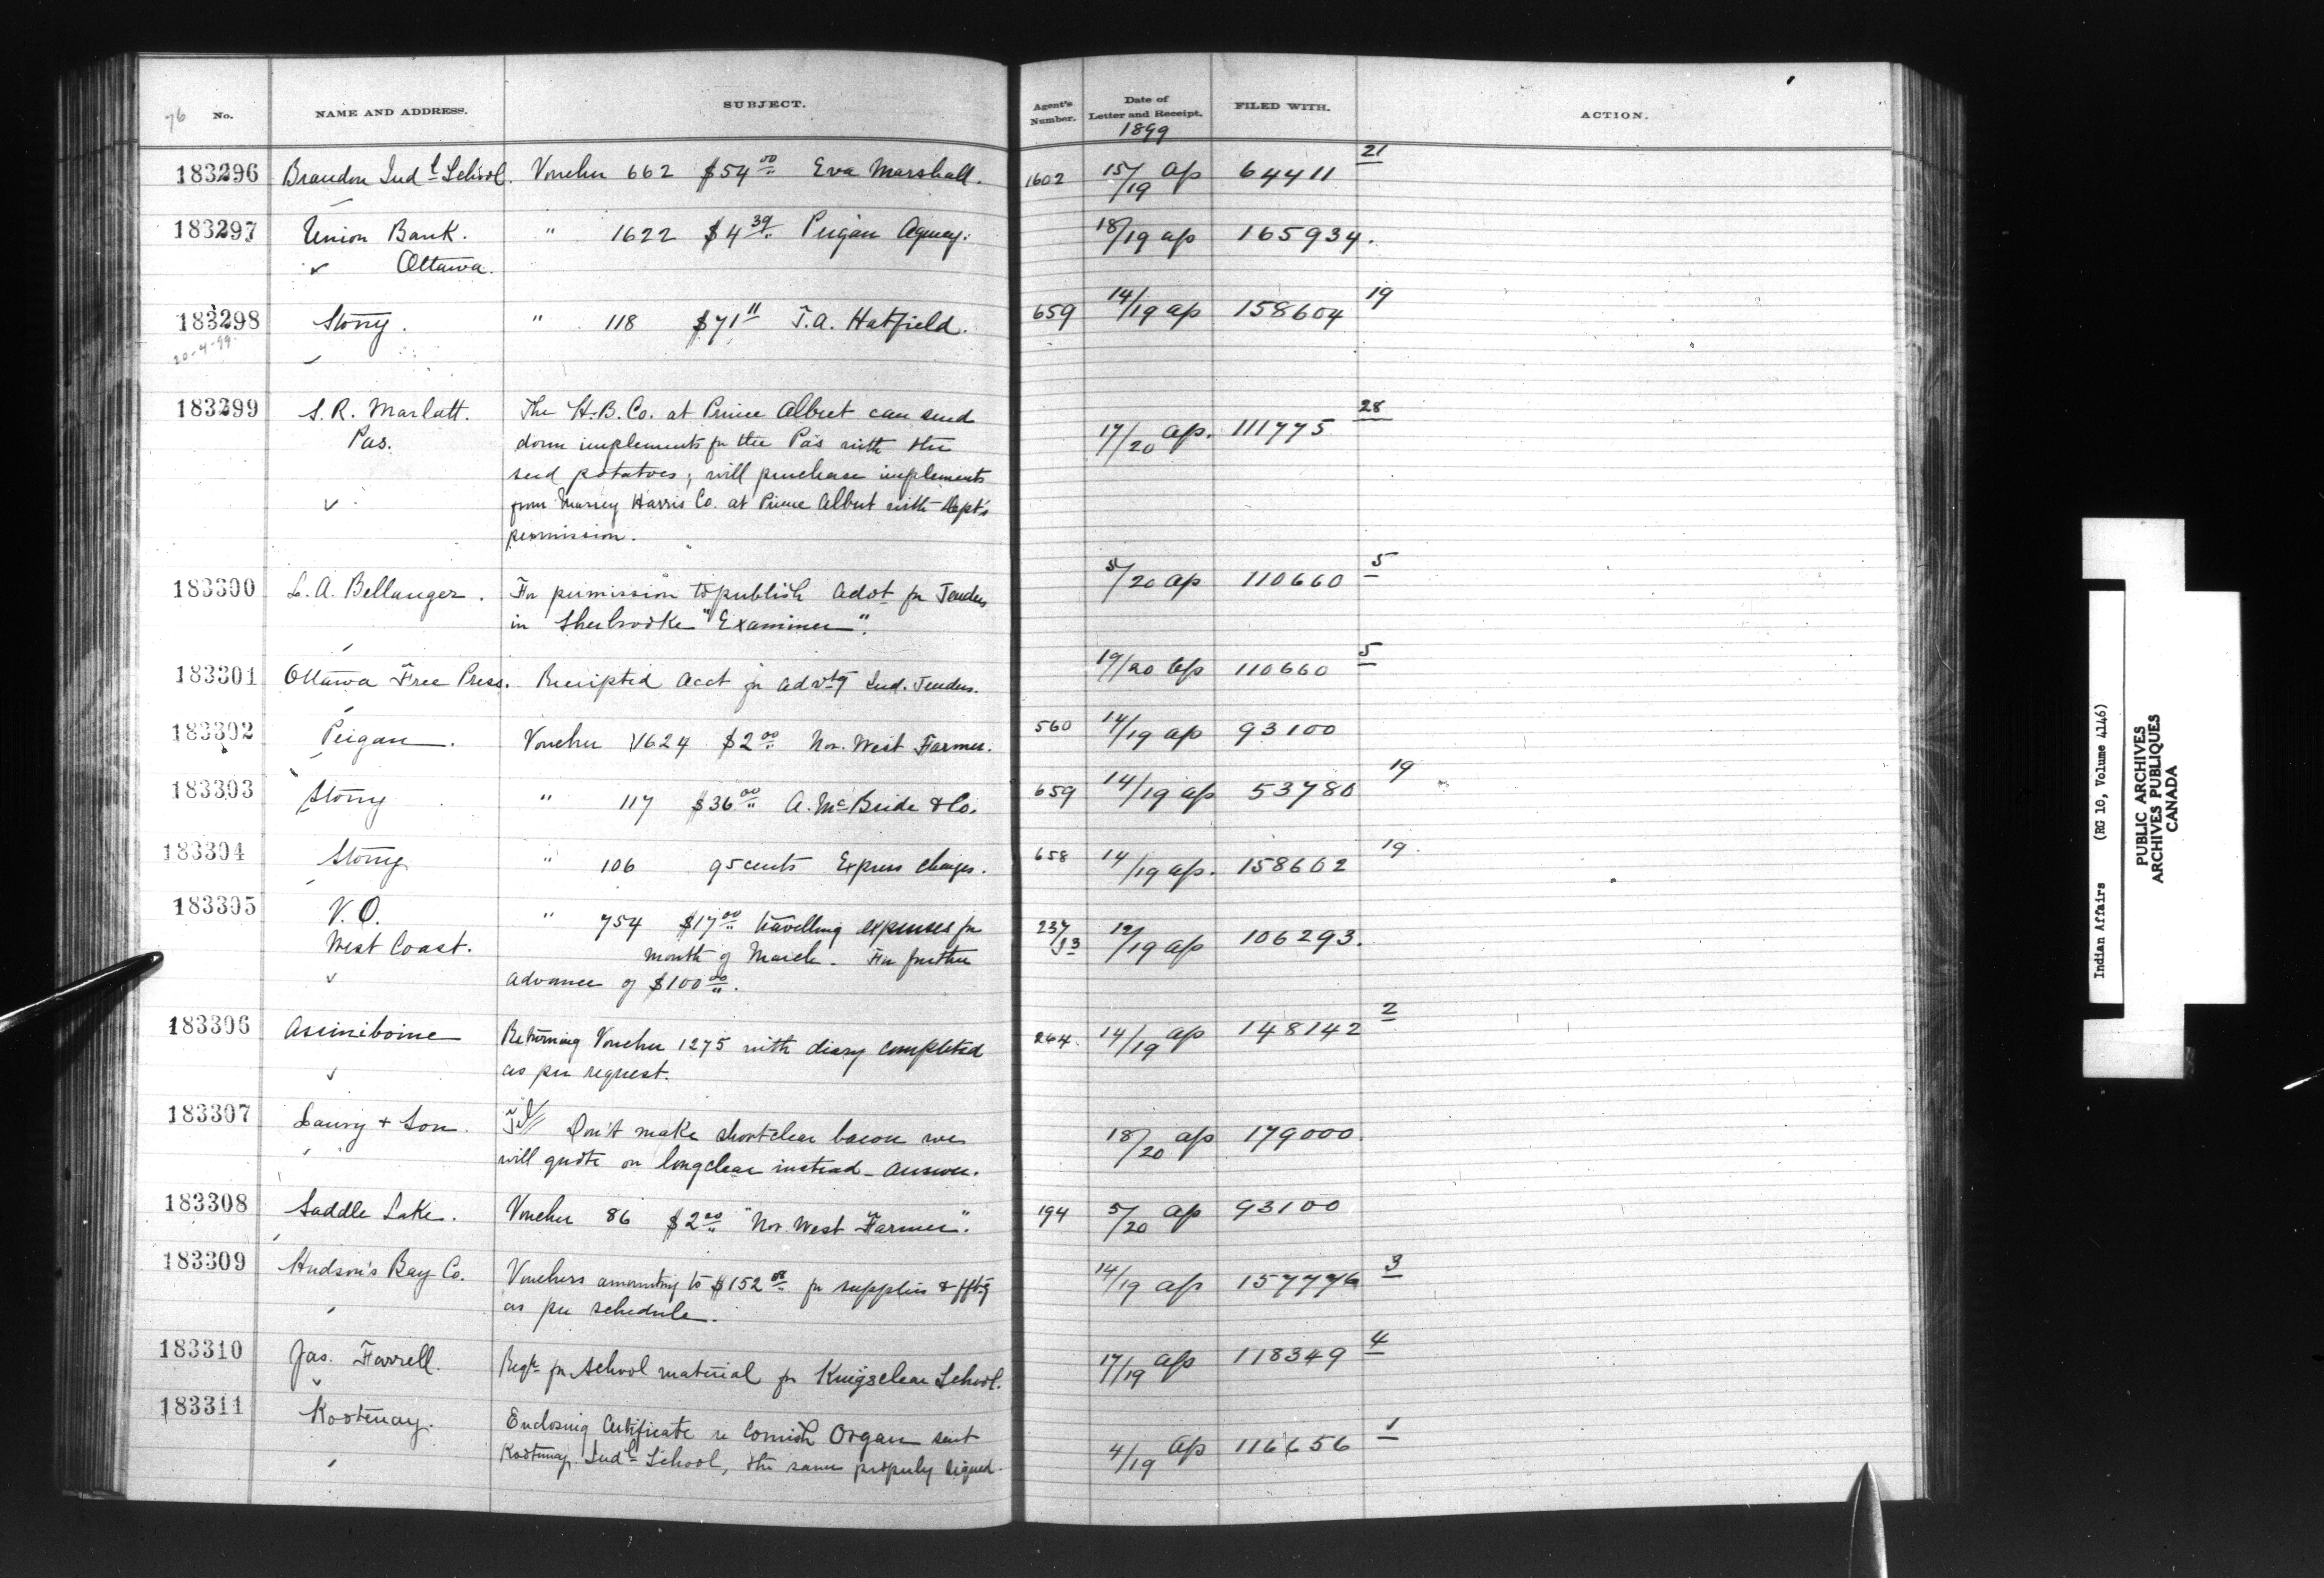 76 No. NAME AND ADDRESS. SUBJECT. Agent's Number. Date of Letter and Receipt. 1899 FILED WITH. ACTION.
183296 Brandon Indl School. Voucher 662 $54 00 Eva Marshall. 1602 15/19 Ap 64411 21
183297 Union Bank. " 1622 $4 39 Peigan Agency. 18/19 ap 165934.
Ottawa.
183298 Stony. " 118 $71 11 T.A. Hatfield. 659 14/19 ap 158604 19
20-4-99.
183299 S. R. Marlatt. The H.B. Co. at Prince Albert can send
Pas. down implements for the Pas with the 17/20 ap. 111775 28
seed potatoes; will purchase implements
from Massey Harris Co. at Prince Albert with Dept's
permission.
183300 L. A. Bellanger. For permission to publish Advt for Tenders 5/20 ap 110660 5
in Sherbrooke "Examiner".
183301 Ottawa Free Press. Receipted Acct for advtg Ind. Tenders. 19/20 ap 110660 5
183302 Peigan. Voucher 1624 $2 00 Nor. West Farmer. 560 14/19 ap 93100
183303 Stony " 117 $36 00 A. McBride & Co. 659 14/19 ap 53780 19
183304 Stony " 106 95 cents Express charges. 658 14/19 ap. 158602 19.
183305 V. O. " 754 $17 00 travelling expenses for 237/93 12/19 ap 106293.
West Coast. month of March. For further
advance of $100 00.
183306 Assiniboine Returning Voucher 1275 with diary completed 264. 14/19 ap 148142 2
as per request.
183307 Lawry & Son. Tel Don't make shortclear bacon we 18/20 ap 179000.
will quote on longclear instead - answer.
183308 Saddle Lake. Voucher 86 $2 00 "Nor. West Farmer". 194 5/20 ap 93100
183309 Hudson's Bay Co. Vouchers amounting to $152 08 for supplies & fftg 14/19 ap 157776 3
as per schedule.
183310 Jas. Farrell. Reqn for School material for Kingsclear School. 17/19 ap 118349 4
183311 Kootenay. Enclosing Certificate re Cornish Organ sent 4/19 ap 116656 1
Kootenay Indl School, the same properly signed.
Indian Affairs (RG 10, Volume 4146)
PUBLIC ARCHIVES
ARCHIVES PUBLIQUES
CANADA